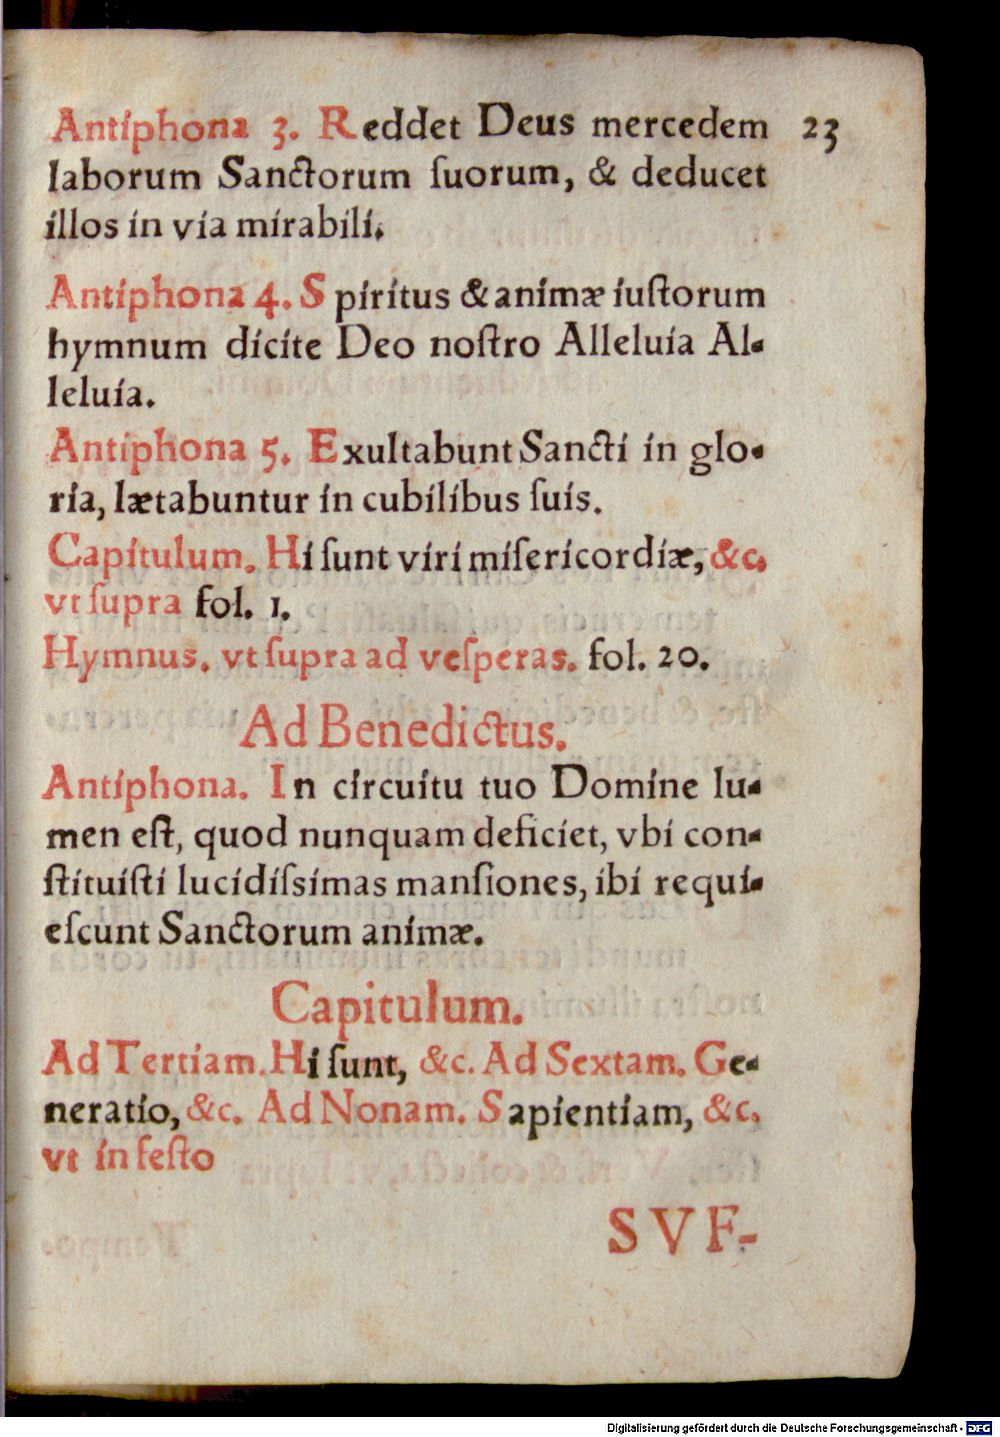 Antiphona 3. Reddet Deus mercedem 23
laborum Sanctorum ſuorum, & deducet
illos in via mirabili.
Antiphona 4. Spiritus & animæ iuſtorum
hymnum dicite Deo noſtro Alleluia Al-
leluia.
Antiphona 5. Exultabunt Sancti in glo-
ria, lætabuntur in cubilibus ſuis.
Capitulum. Hi ſunt viri miſericordiæ, &c.
vt ſupra fol. 1.
Hymnus. vt ſupra ad veſperas. fol. 20.
Ad Benedictus.
Antiphona. In circuitu tuo Domine lu-
men eſt, quod nunquam deficiet, vbi con-
ſtituiſti lucidiſsimas manſiones, ibi requi-
eſcunt Sanctorum animæ.
Capitulum.
Ad Tertiam. Hi ſunt, &c. Ad Sextam. Ge-
neratio, &c. Ad Nonam. Sapientiam, &c.
vt in feſto
SVF-
Digitalisierung gefördert durch die Deutsche Forschungsgemeinschaft - DFG